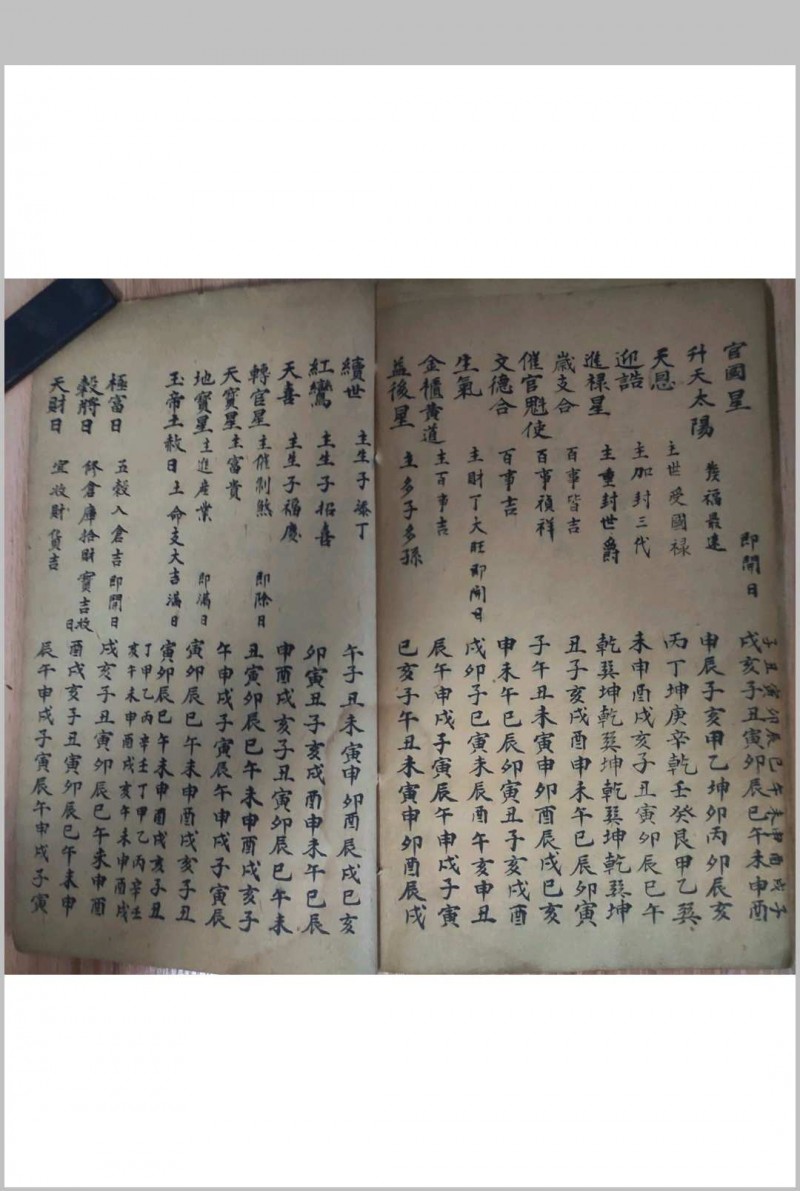 官國星 即開日 戌亥子丑寅卯辰巳午未申酉
子丑寅卯辰巳午未申酉戌子
升天太陽 發福最速 申辰子亥甲乙坤卯丙卯辰亥
天恩 主世受國祿 丙丁坤庚辛乾壬癸艮甲乙巽
迎誥 主加封三代 未申酉戌亥子丑寅卯辰巳午
進祿星 主重封世爵 乾巽坤乾巽坤乾巽坤乾巽坤
歲支合 百事皆吉 丑子亥戌酉申未午巳辰卯寅
催官魁使 百事禎祥 子午丑未寅申卯酉辰戌巳亥
文德合 百事吉 申未午巳辰卯寅丑子亥戌酉
生氣 主財丁大旺即開日 戌卯子巳寅未辰酉午亥申丑
金櫃黃道 主百事吉 辰午申戌子寅辰午申戌子寅
益後星 主多子多孫 巳亥子午丑未寅申卯酉辰戌
續世 主生子添丁 午子丑未寅申卯酉辰戌巳亥
紅鸞 主生子招喜 卯寅丑子亥戌酉申未午巳辰
天喜 主生子福慶 申酉戌亥子丑寅卯辰巳午未
轉官星 主催制煞 即除日 丑寅卯辰巳午未申酉戌亥子
天寶星 主富貴 午申戌子寅辰午申戌子寅辰
地寶星 主進産業 即滿日 寅卯辰巳午未申酉戌亥子丑
玉帝土赦日 土命支大吉滿日 寅卯辰巳午未申酉戌亥子丑
丁甲乙丙辛壬丁甲乙丙辛壬
亥午未申酉戌亥午未申酉戌
極富日 五穀入倉吉即開日 戌亥子丑寅卯辰巳午未申酉
穀將日 修倉庫拾財寶吉收日 酉戌亥子丑寅卯辰巳午未申
天財日 宜收財貨吉 辰午申戌子寅辰午申戌子寅